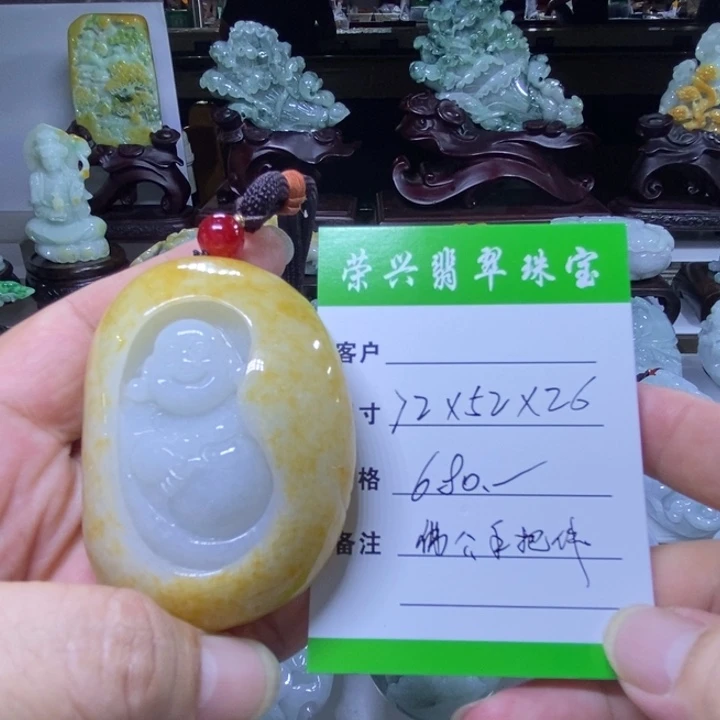 荣兴翡翠珠宝
客户
寸 72X52X26
格 680.-
备注 佛公手把件